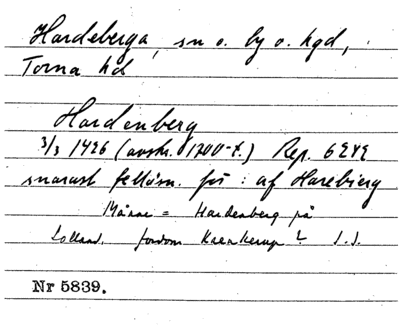 Hardeberga, sn o. by o. hgd,
Torna hd
Hardenberg
3/3 1426 (avskr. 1700-t.) Rep. 6242
snarast felläsn. för: af Harebierg
Månne = Hardenberg på
Lolland, fordom Kærskerup? I.I.
Nr 5839.